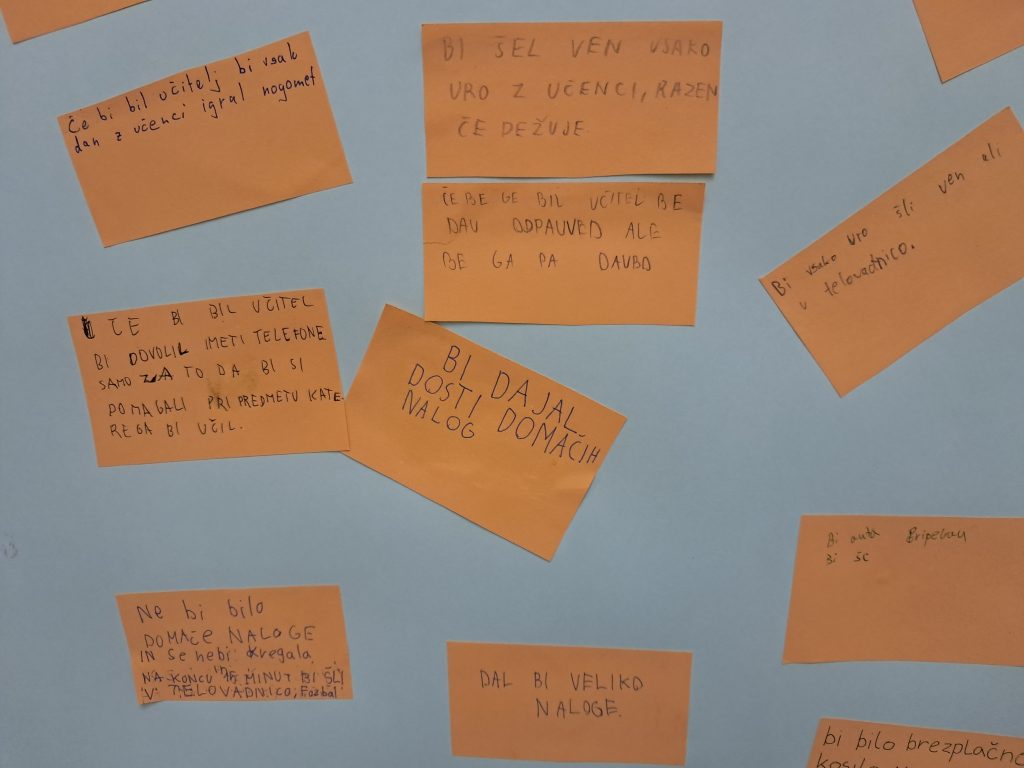 Če bi bil učitelj bi vsak
dan z učenci igral nogomet
BI ŠEL VEN VSAKO
URO Z UČENCI, RAZEN
ČE DEŽUJE
ČE BE GE BIL UČITEL BE
DAU ODPAUVED ALE
BE GA PA DAUBO
Bi vsako uro šli ven ali
v telovadnico.
ČE BI BIL UČITEL
BI DOVOLIL IMETI TELEFONE
SAMO ZA TO DA BI SI
POMAGALI PRI PREDMETU KATE-
REGA BI UČIL.
BI DAJAL
DOSTI DOMAČIH
NALOG
Bi
Bi
Ne bi bilo
DOMAČE NALOGE
IN se nebi kregala
NA KONCU URE MINUT BI ŠLI
V TELOVADNICO, Fozbal
DAL BI VELIKO
NALOGE.
bi bilo brezplačno
kosilo